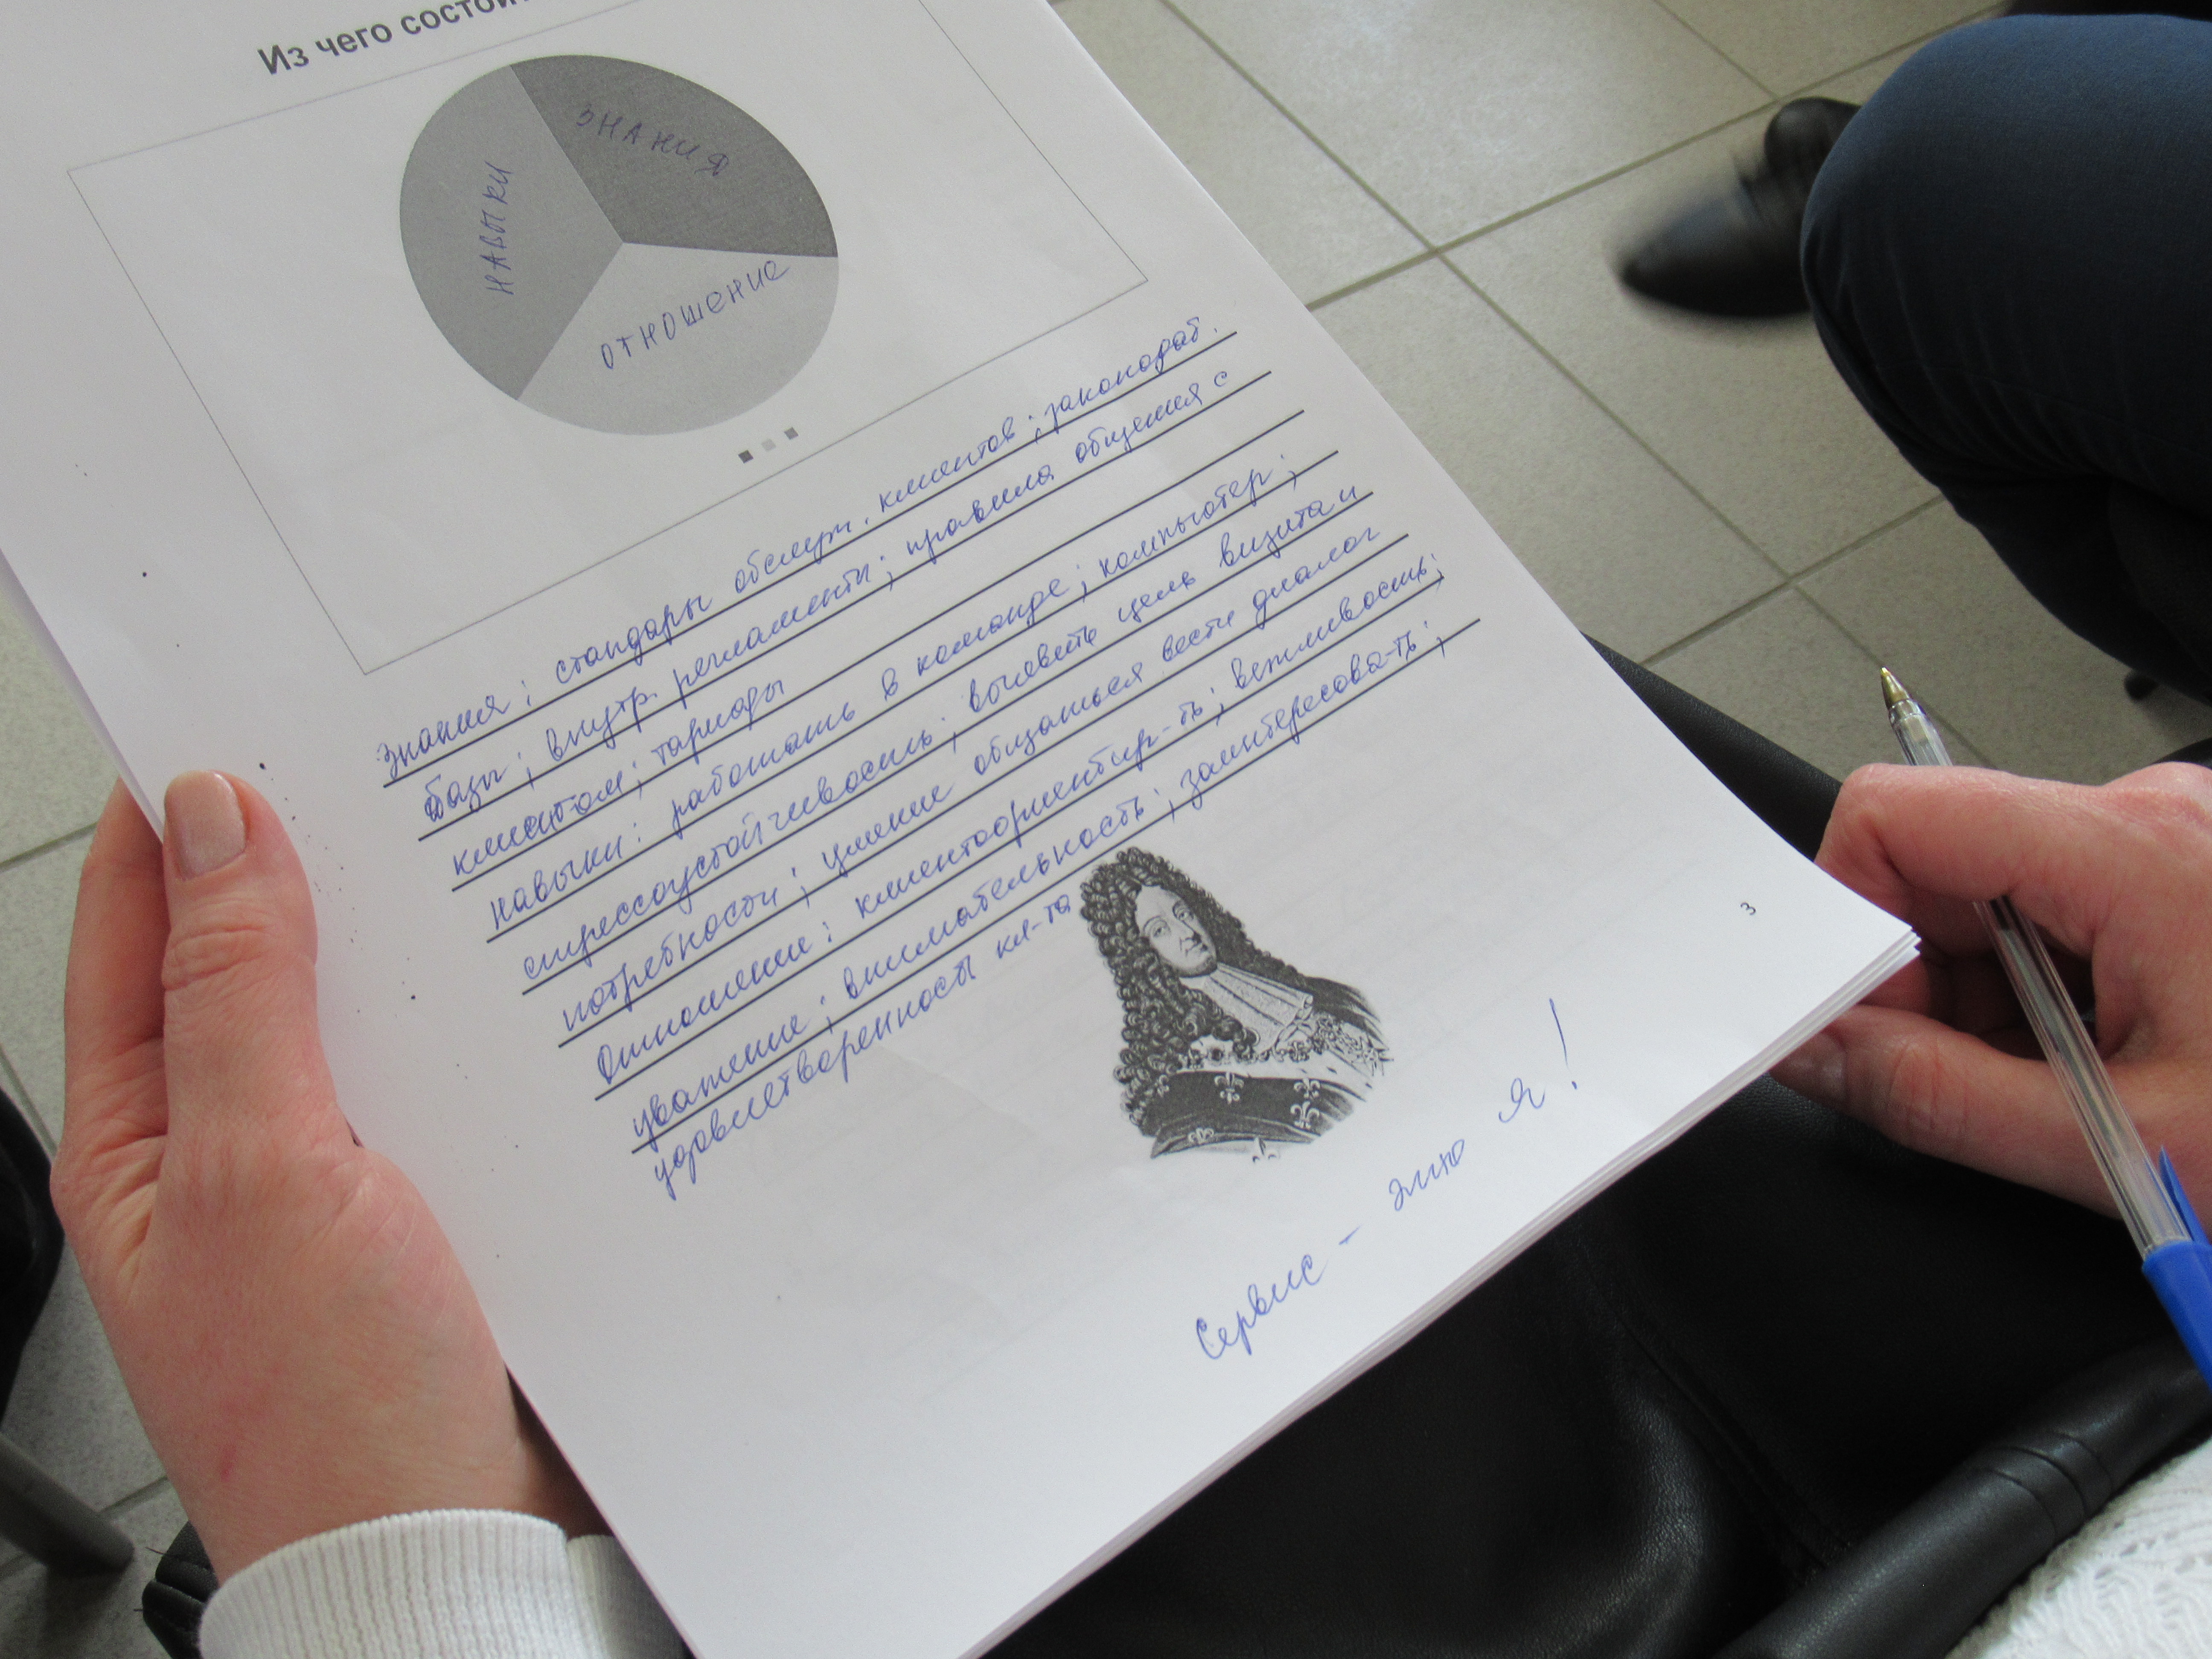 Из чего состои
ЗНАНИЯ
НАВЫКИ
ОТНОШЕНИЕ
Знания: стандарты обслуж. клиентов; законодат.
базы; внутр. регламенты; правила общения с
клиентом; тарифы
навыки: работать в команде; компьютер;
стрессоустойчивость; выявить цель визита и
потребности; умение общаться вести диалог
Отношение: клиентоориентир-ть; вежливость;
уважение; внимательность; заинтересова-ть;
удовлетворенность кл-та
3
Сервис – это я!